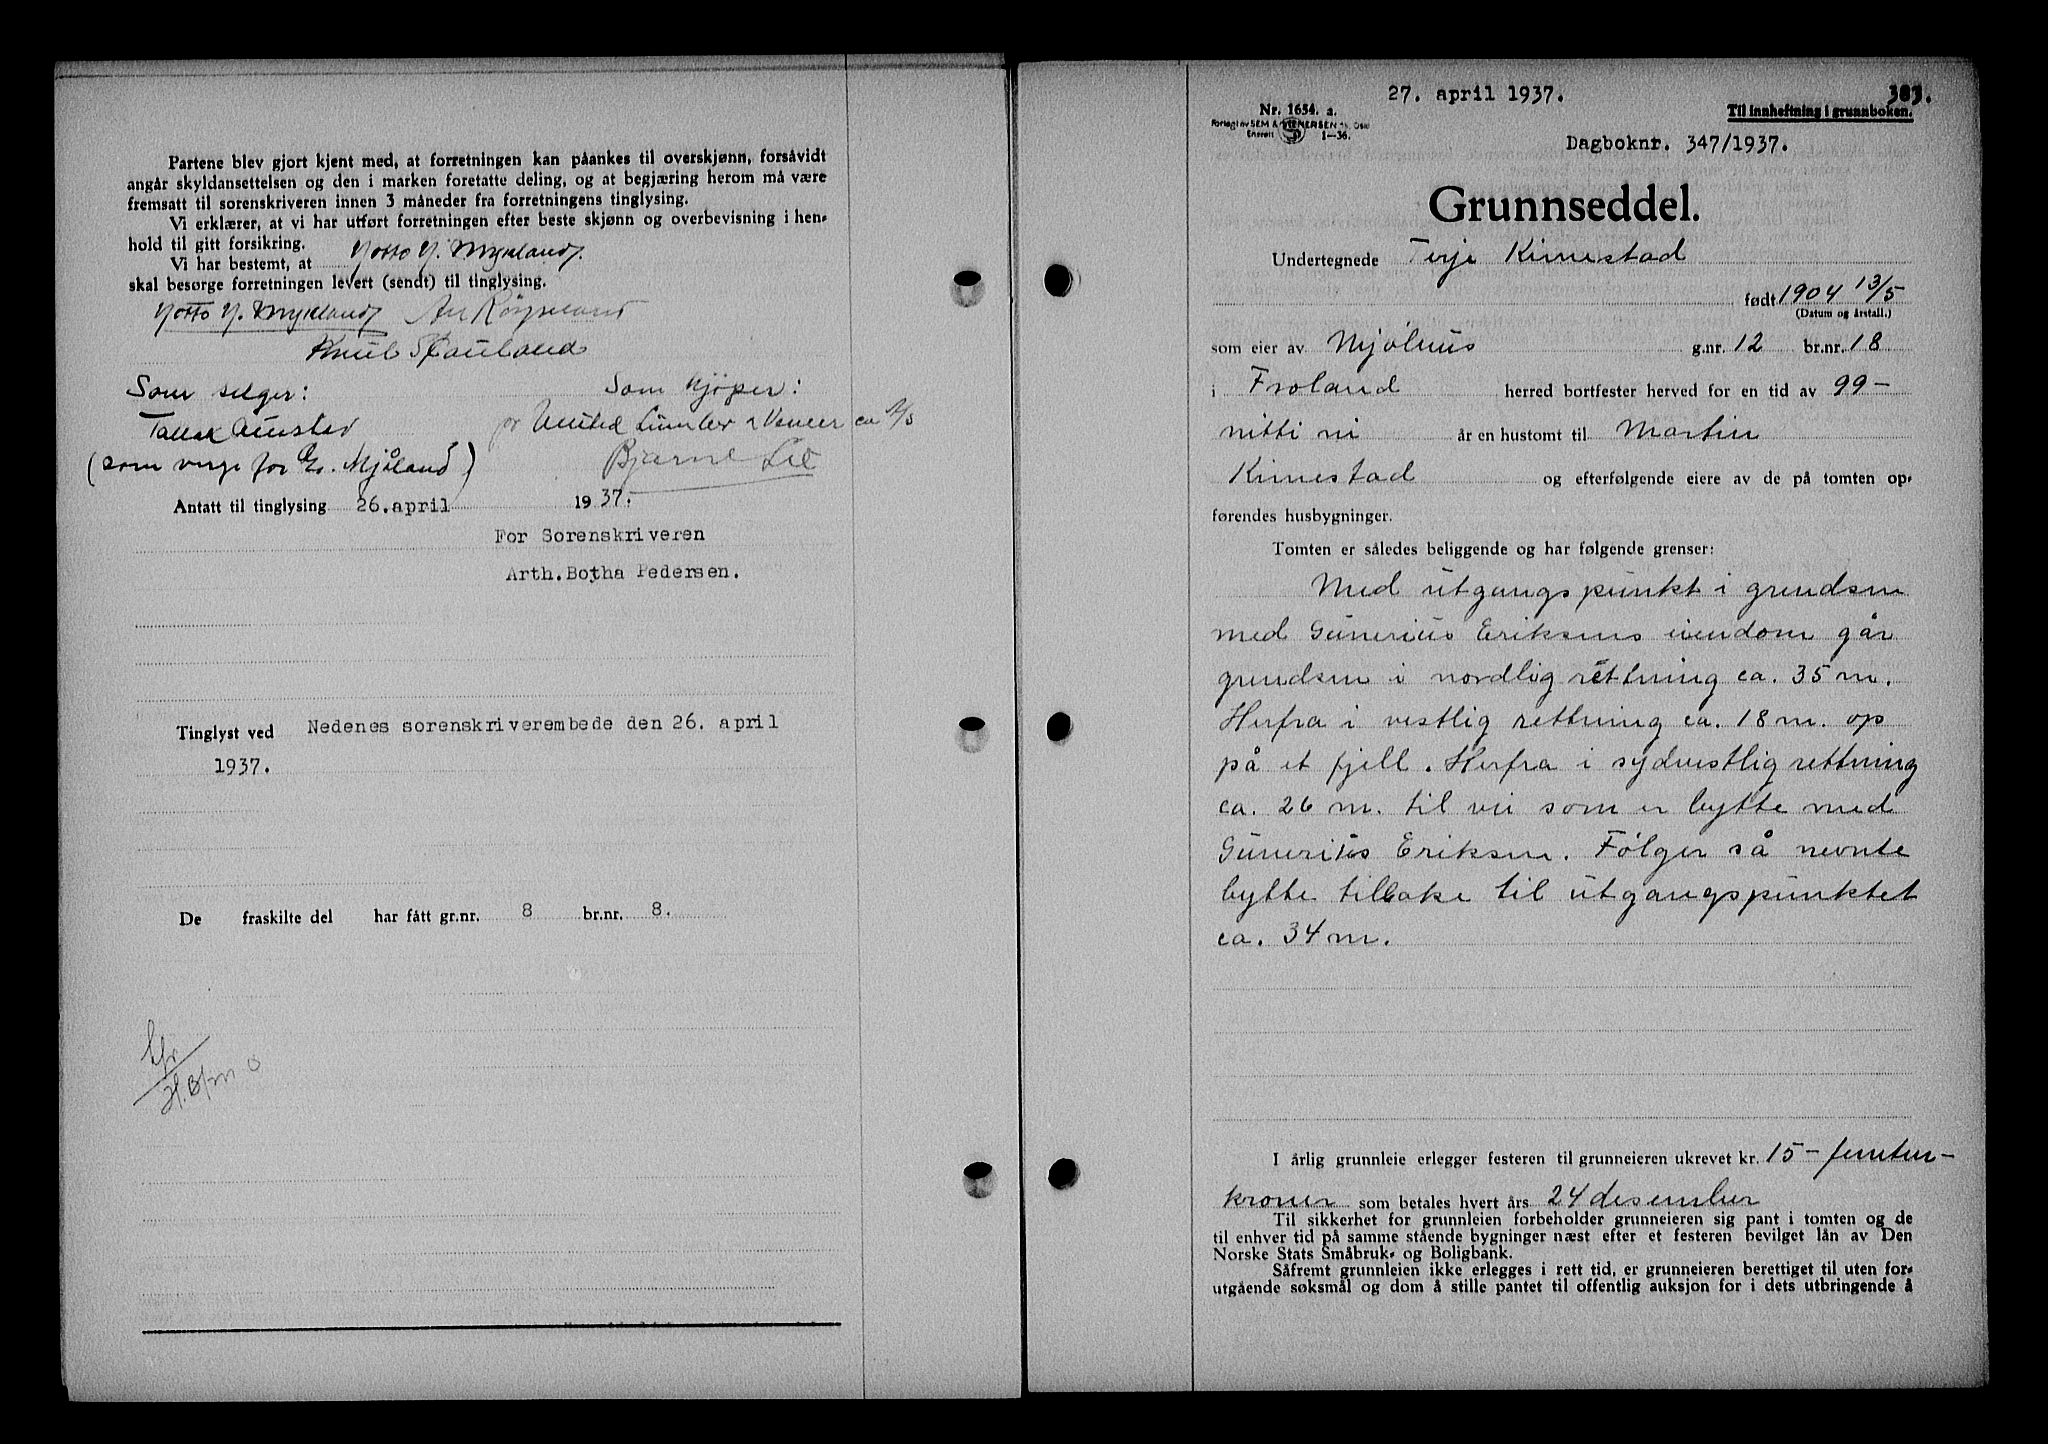 Partene blev gjort kjent med, at forretningen kan påankes til overskjønn, forsåvidt
angår skyldansettelsen og den i marken foretatte deling, og at begjæring herom må være
fremsatt til sorenskriveren innen 3 måneder fra forretningens tinglysing.
Vi erklærer, at vi har utført forretningen efter beste skjønn og overbevisning i hen-
hold til gitt forsikring.
Vi har bestemt, at Notto N. Mykland
skal besørge forretningen levert (sendt) til tinglysing.
Notto N. Mykland
Knut
Som selger: Som kjøper:
Tallak Aunstad pr United Lumber & Veneer co A/S
(som verge for G. Mjåland) Bjarne Lie
Antatt til tinglysing 26. april 1937.
For Sorenskriveren
Arth. Botha Pedersen.
Tinglyst ved Nedenes sorenskriverembede den 26. april
1937.
De fraskilte del har fått gr.nr. 8 br.nr. 8.
27. april 1937.
Nr. 1654. a.
Forlagt av SEM & STENERSEN A/S, Oslo
Enerett 1-36.
Til innheftning i grunnboken.
Dagboknr. 347/1937.
Grunnseddel.
Undertegnede Terje Kimestad
født 1904 13/5
(Datum og årstall.)
som eier av Mjølhus g.nr. 12 br.nr. 18
i Froland herred bortfester herved for en tid av 99-
nitti ni år en hustomt til Martin
Kimestad og efterfølgende eiere av de på tomten op-
førendes husbygninger.
Tomten er således beliggende og har følgende grenser:
Med utgangspunkt i grendsen
med Gunerius Eriksens eiendom går
grendsen i nordlig rettning ca. 35 m.
Herfra i vestlig rettning ca. 18 m. op
på et fjell. Herfra i sydvestlig rettning
ca. 26 m. til vei som er bytte med
Gunerius Eriksen. Følger så nevnte
bytte tilbake til utgangspunktet
ca. 34 m.
I årlig grunnleie erlegger festeren til grunneieren ukrevet kr. 15- femten-
kroner som betales hvert års 24 desember
Til sikkerhet for grunnleien forbeholder grunneieren sig pant i tomten og de
til enhver tid på samme stående bygninger næst efter et festeren bevilget lån av Den
Norske Stats Småbruk- og Boligbank.
Såfremt grunnleien ikke erlegges i rett tid, er grunneieren berettiget til uten for-
utgående søksmål og dom å stille pantet til offentlig auksjon for i dets utbringende å